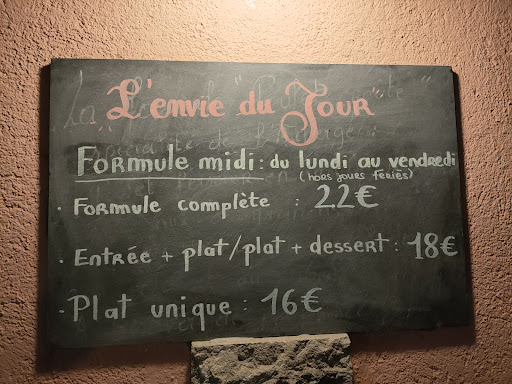 "L'envie du Jour"
Formule midi : du lundi au vendredi
(hors jours fériés)
· Formule complète : 22€
· Entrée + plat/plat + dessert : 18€
· Plat unique : 16€